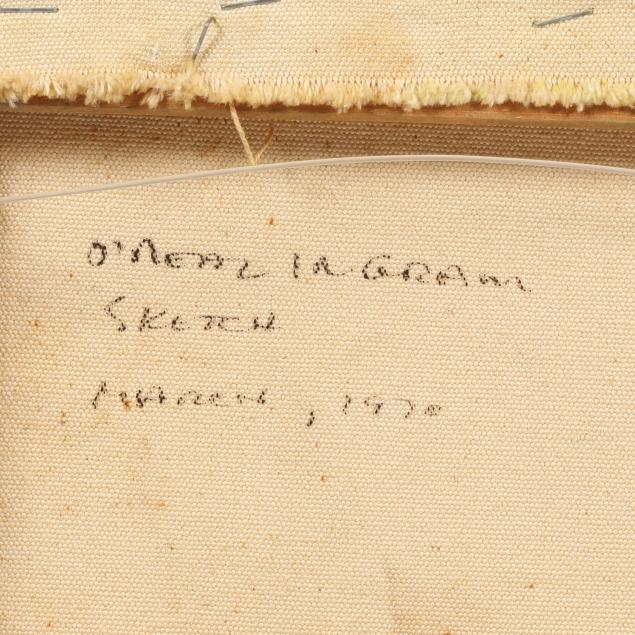 O'NEAL INGRAM
SKETCH
MARCH, 1970